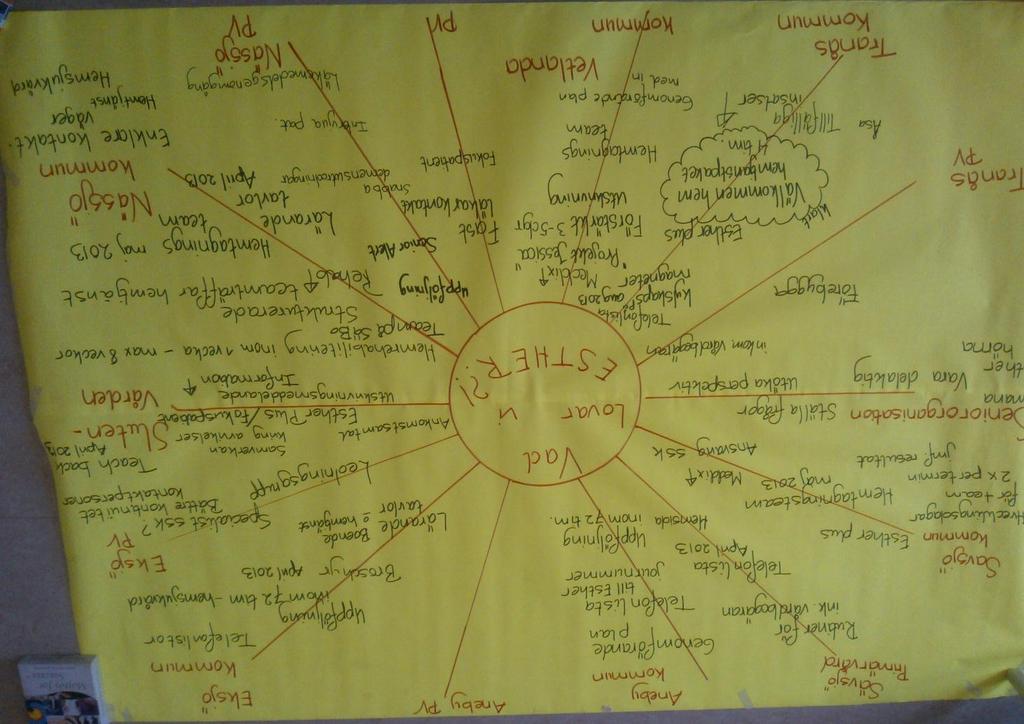 Vad
Lovar vi
ESTHER?!
Aneby PV
Eksjö
Kommun
Telefonlistor
Uppföljning
inom 72 tim - hemsjukvård
Broschyr April 2013
Boende
o hemtjänst
Lärande
tavlor
Eksjö
PV
Specialist ssk?
Bättre kontinuitet
kontaktpersoner
Ledningsgrupp
Teach back
April 2013
Sluten-
Vården
Samverkan
kring avvikelser
Ankomstsamtal
Esther Plus/fokuspatient
Utskrivningsmeddelande
Information ↑
Hemrehabilitering inom 1 vecka - max 8 veckor
Team på SäBo
Strukturerade
teamträffar hemtjänst
Rehab ↑
Hemtagnings
team
maj 2013
Lärande
tavlor
April 2013
Nässjö
Kommun
Enklare kontakt.
vägar
Hemtjänst
Hemsjukvård
Uppföljning
Senior Alert
snabba
demensutredningar
Intervjua pat.
Läkemedelsgenomgång
Nässjö
PV
Fast
läkarkontakt
Fokuspatient
PV
Meddix ↑
Projekt "Jessica"
Förstärkt 3-5 dgr
utskrivning
Hemtagnings
team
Genomförande plan
med in
Vetlanda
Kommun
Telefonlista
Kylskåps
magneter
aug 2013
Esther plus
Klart
Välkommen hem
hemtjänstpaket
4 tim.
Tillfälliga
insatser
Åsa
Tranås
Kommun
Förebygga
Tranås
PV
inkom vårdbegäran
utöka perspektiv
Ställa frågor
Vara delaktig
Seniororganisation
Ansvarig ssk
Meddix ↑
Hemtagningsteam
maj 2013
Esther plus
Utvecklingsdagar
för team
2 x per termin
jmf. resultat
Sävsjö
Kommun
Hemsida
Telefonlista
April 2013
Rutiner för
ink. vårdbegäran
Sävsjö
Primärvård
Uppföljning
inom 72 tim.
Telefonlista
till Esther
journummer
Genomförande
plan
Aneby
Kommun